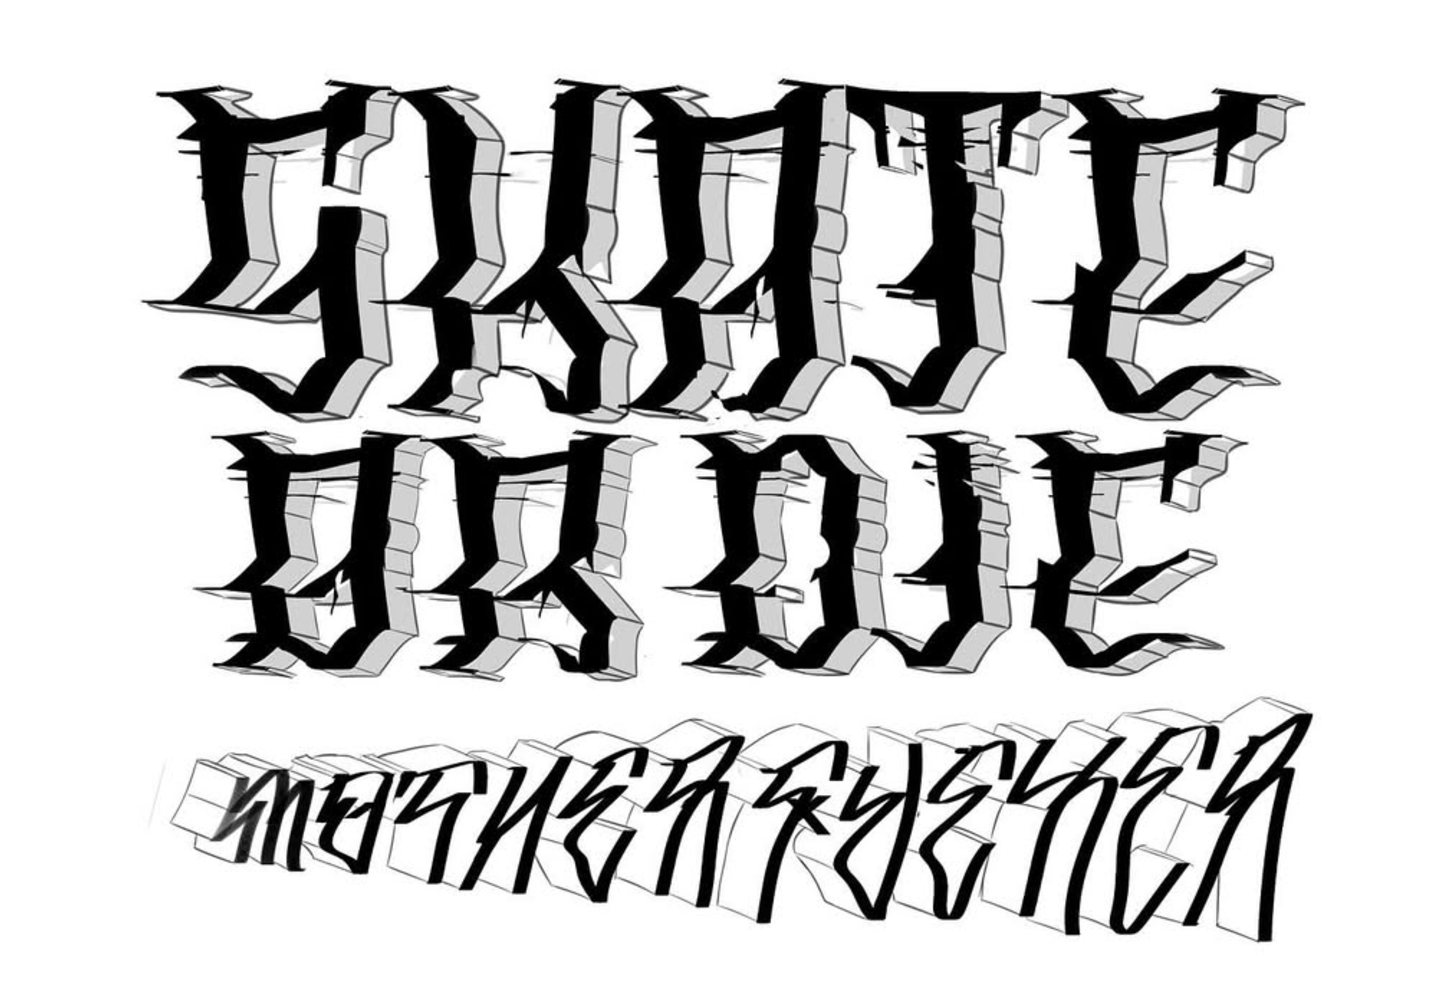 SKATE
OR DIE
MOTHERFUCKER